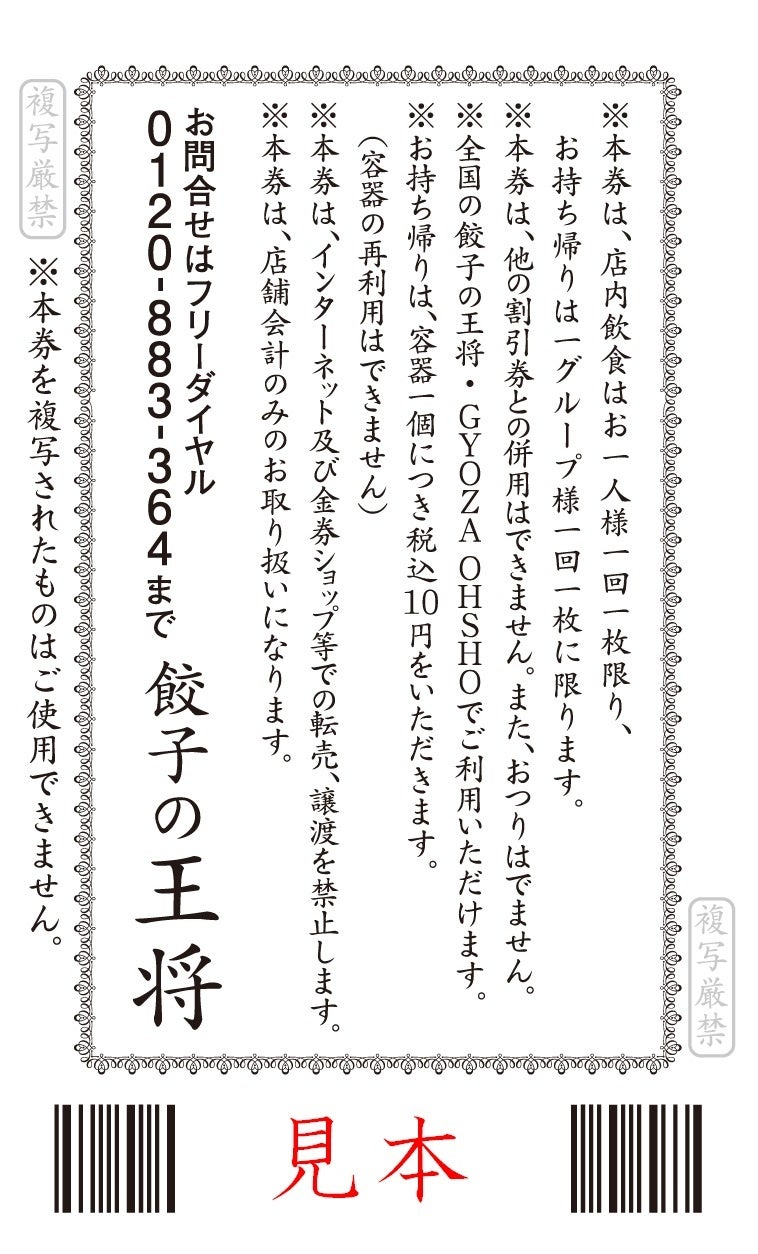 複写厳禁
※本券は、店内飲食はお一人様一回一枚限り、
お持ち帰りは一グループ様一回一枚に限ります。
※本券は、他の割引券との併用はできません。また、おつりはでません。
※全国の餃子の王将・GYOZA OHSHOでご利用いただけます。
※お持ち帰りは、容器一個につき税込10円をいただきます。
(容器の再利用はできません)
※本券は、インターネット及び金券ショップ等での転売、譲渡を禁止します。
※本券は、店舗会計のみのお取り扱いになります。
お問合せはフリーダイヤル
0120-883-364まで
餃子の王将
複写厳禁
※本券を複写されたものはご使用できません。
見本